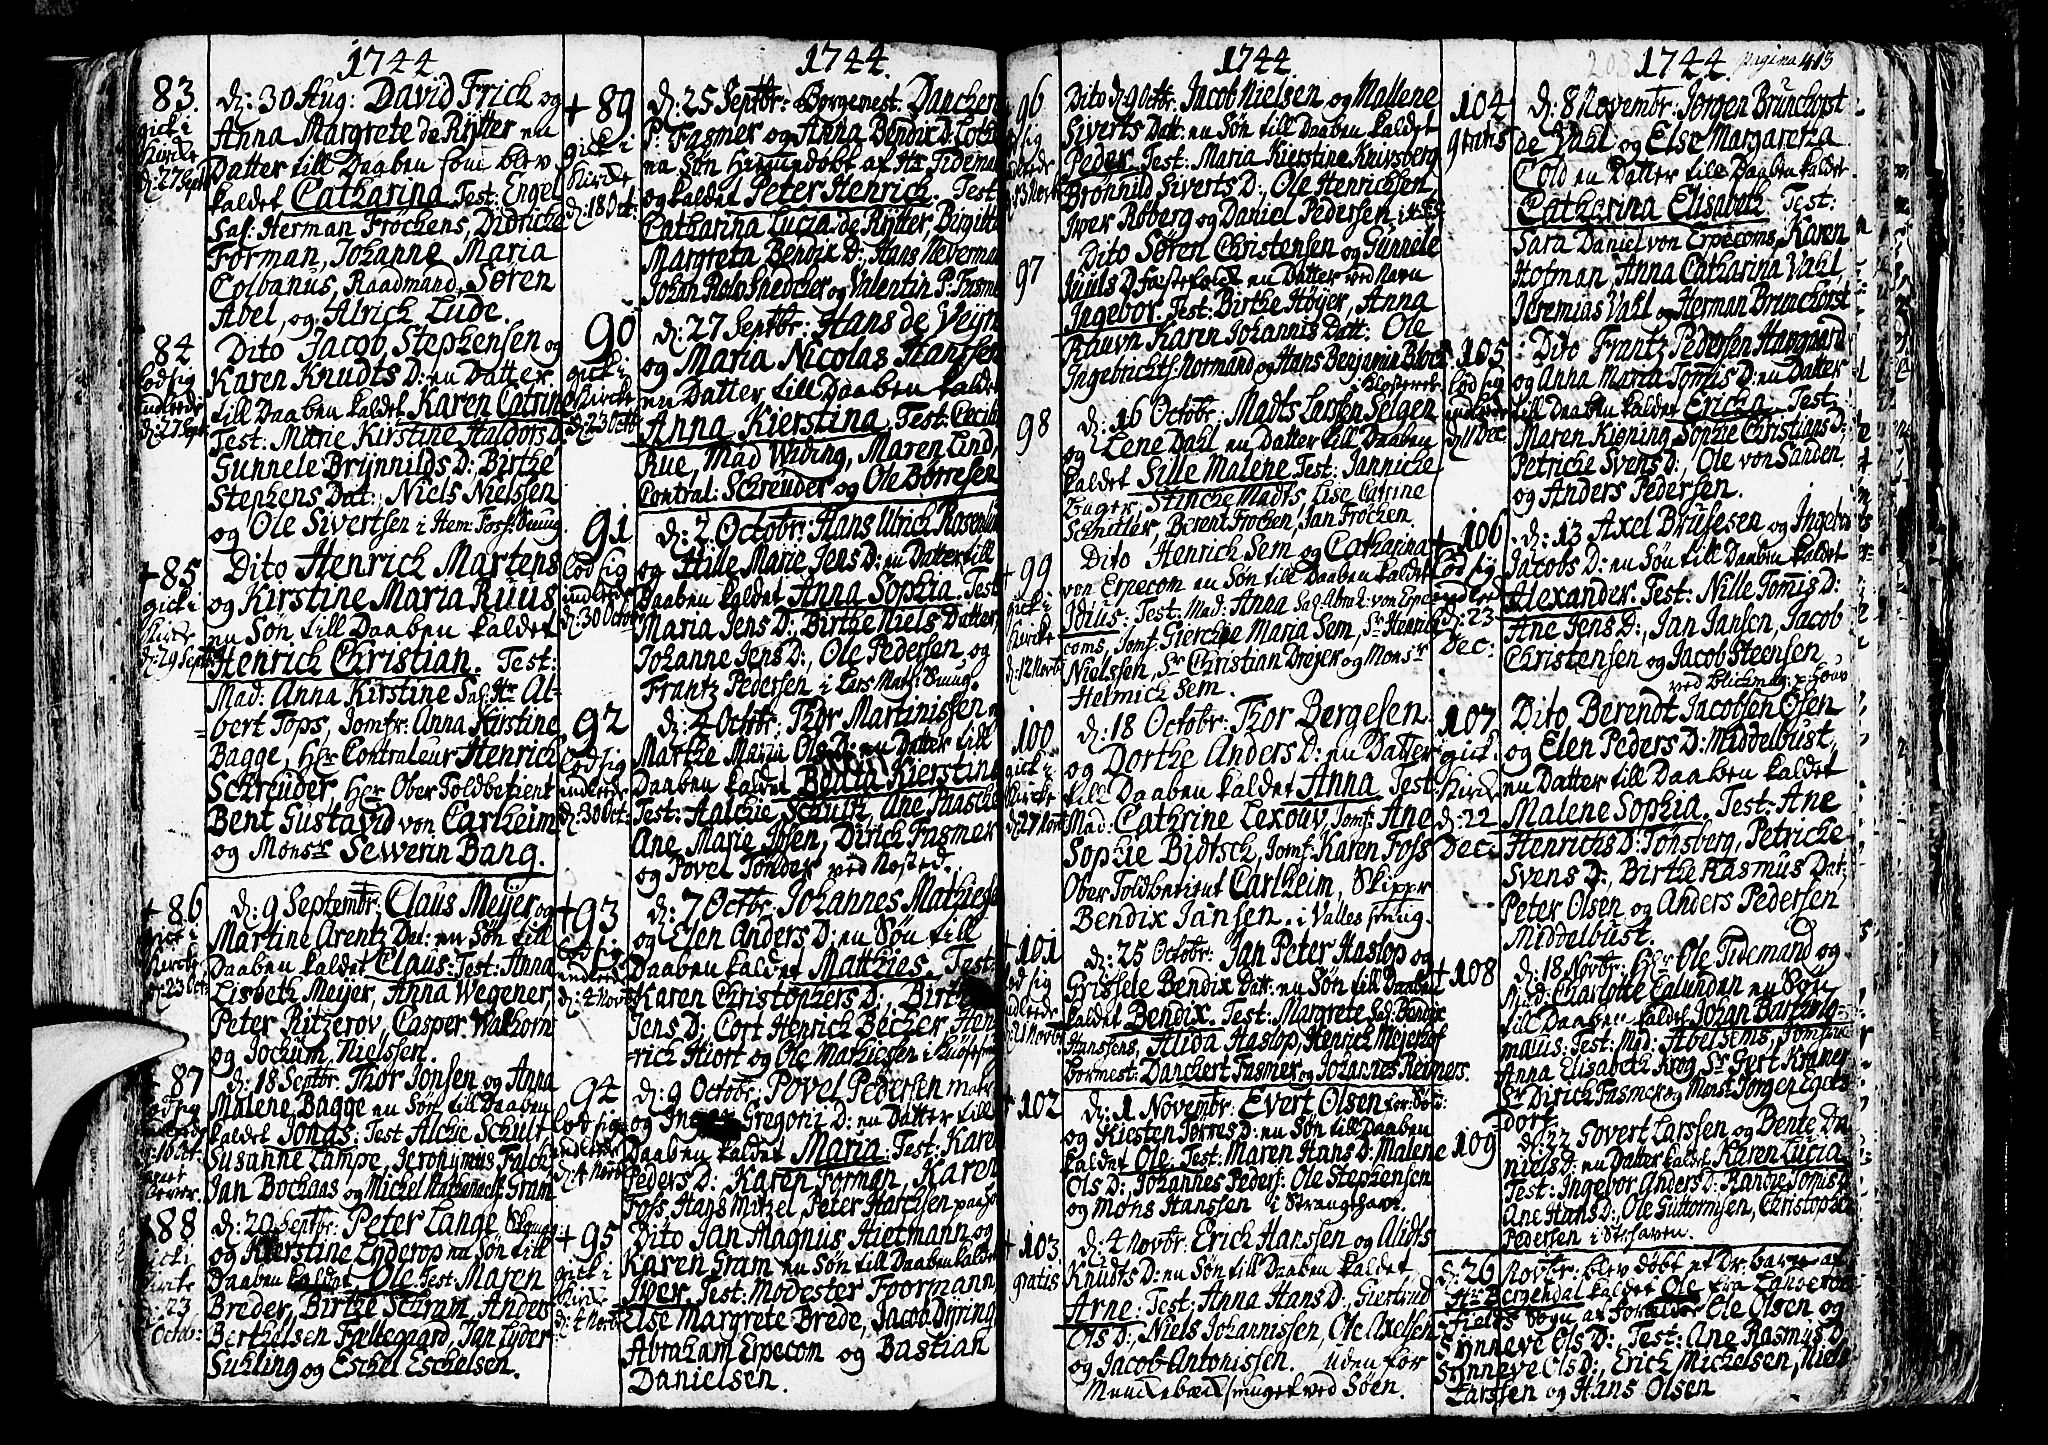 1744
83.
gick i
Kircke
d: 27 Sept
d: 30 Aug: David Frick og
Anna Margrete de Rÿtter en
Datter till Daaben som blev
kaldet Catharina Test: Engel
Sal: Herman Fröckens, Didricke
Forman, Johanne Maria
Colbanus, Raadmand Søren
Abel, og Alrich Lude.
84
lod sig
indlede
d: 27 Sept
Dito Jacob Stephensen og
Karen Knudts D: en Datter
till Daaben kaldet Karen Catrin
Test: Marie Kirstine Haldors D
Gunnele Brÿnnilds D: Birthe
Stephens Dat:, Niels Nielssen
og Ole Sivertsen i Hem: Foss: Smug
+ 85
gick i
Kircke
d: 29 Sept
Dito Henrich Martens
og Kirstine Maria Ruus
en Søn till Daaben kaldet
Henrich Christian. Test:
Mad: Anna Kirstine Sal: Hr Al-
bert Tops, Jomfr: Anna Kirstine
Bagge, Hr Contraleur Henrich
Schreuder, Her Ober Toldbetient
Bent Gustavid von Carlheim
og Monsr Sewerin Bang.
+ 86
gick i
Kircke
23 Oct:
d: 9 Septembr: Claus Meijer og
Martine Arentz Dat: en Søn till
Daaben kaldet Claus: Test: Anna
Lisbeth Meijer, Anna Wegener,
Peter Ritzerov, Casper Walhorn
og Jochum Nielssen.
87
d: 18 Septbr: Thor Jonsen og Anna
Malene Bagge en Søn till Daaben
kaldet Jonas: Test Alchie Schult
Susanne Lampe, Jeronÿmus Falck,
Jan Bochaas og Michel Gram
88
gick i
Kircke
23
Octobr:
d: 20 Septbr: Peter Lange
og Kierstine Enderop en Søn till
Daaben kaldet Ole. Test: Maren
Breder, Birthe Schram, Anders
Berthelsen Fallegaard, Jan Lÿder
Suhling og Eschel Eschelsen.
1744.
+ 89
gick i
Kircke
d: 18 Oct:
d: 25 Septbr: Borgemest: Danchert
P: Fasmer og Anna Bendix D: Lothe
en Søn Hiemmdøbt af Hr Tidemand
og kaldet Peter Henrich. Test:
Catharina Lucia de Rÿtter, Birgitte
Margreta Bendix D:, Hans Næverman
Johan Rolo Snedcker og Valentin P: Fasmer
90
gick i
Kircke
d: 23 Octb
d: 27 Septbr: Hans de Veÿn
og Maria Nicolas Hanssen
en Datter till Daaben kaldet
Anna Kierstina. Test: Cecilie
Rue, Mad Widing, Maren Lind,
Contral: Schreuder og Ole Børresen
91
lod sig
indlede
d: 30 Octob
d: 2 Octobr: Hans Ulrich Rosenlund
og Hille Marie Jens D: en Datter till
Daaben kaldet Anna Sophia. Test
Maria Jens D:, Birthe Niels Datter,
Johanne Jens D:, Ole Pedersen, og
Frantz Pedersen i Lars Math: Smug.
92
lod sig
indlede
d: 30 Oct:
d: 4 Octobr: Thor Martinissen og
Marthe Maria Ols D: en Datter till
Daaben kaldet Beata Kierstina
Test: Aalchie Schult, Ane Paaske
Ane Marie Ipsen, Dirich Fasmer
og Povel Tønder ved Nøsted.
+ 93
lod sig
indlede
d: 4 Novb
d: 7 Octbr: Johannes Mathiesen
og Elen Anders D: en Søn till
Daaben kaldet Matthies. Test:
Karen Christophers D:, Birthe
Jens D: Cort Henrich Becker Hen-
rich Hiort og Ole Mathiesen
94
lod sig
indlede
d: 4 Novb
d: 9 Octobr: Povel Pedersen
og Inger Gregorii D: en Datter till
Daaben kaldet Maria: Test: Karen
Peders D: Karen Forman, Karen
Foss, Hans Mitzel, Peter Harchsen
+ 95
gick i
Kircke
d: 4 Novb
Dito Jan Magnus Hietmann og
Karen Gram en Søn till Daaben kaldet
Iver. Test: Modester Foormann
Else Margrete Brede, Jacob Dÿring
Abraham Erpecom og Bastian
Danielsen.
1744
96
Dito d: 9 Octbr: Jacob Nielsen og Mallene
Siverts Datt: en Søn till Daaben kaldet
Peder Test: Maria Kierstine Knivsberg
Brønnild Siverts D:, Ole Henrichsen,
Iver Roberg og Daniel Pedersen
97
Dito Søren Christensen og Gunnele
Juuls D fæstefolck en Datter ved Navn
Ingebor. Test: Birthe Høÿer, Anna
Rauvn Karen Johannis Datt: Ole
Ingebrichts: Normand og Hans Benjamin Block
98
d: 16 Octobr: Madts Larssen Selgen
og Lene Dahl en Datter till Daaben
kaldet Sille Malene Test: Jannicke
Lager, Stinche Madts, Lise Catrine
Schnitler, Berent Frochen, Jan Frochen.
+ 99
gick i
Kircke
d: 12 Novb
Dito Henrich Sem og Catharina
von Erpecom en Søn till Daaben kaldet
Idius: Test: Mad: Anna Sal: Abrah: von Erpe
coms, Jomf: Gierche Maria Sem, Sr Henrich
Nielssen, Sr Christian Dreÿer og Monsr
Helmich Sem.
100
gick i
Kircke
d: 27 Novb
d: 18 Octobr: Thor Bergesen
og Dorthe Anders D: en Datter
till Daaben kaldet Anna Test:
Mad: Cathrine Lexouv, Jomf: Ane
Sophie Bidtsch, Jomf: Karen Foss
Ober Toldbetient Carlheim, Skipper
Bendix Jansen. i Valles smug.
+ 101
lod sig
indlede
d: 21 Novbr
d: 25 Octobr: Jan Peter Haslop og
Grissele Bendix Datt: en Søn till Daaben
kaldet Bendix. Test: Margrete Sal: Bendix
Hanssens, Alida Haslop, Henrich Meÿerhof
Bormest: Danckert Fasmer og Johannes Reimers.
+ 102
d: 1 Novembr: Evert Olsen
og Kiesten Torres D: en Søn till Daaben
kaldet Ole. Test: Maren Hans D: Malene
Ols D:, Johannes Peders: Ole Stephensen
og Mons Hanssen i Strangehavn.
+ 103
gratis
d: 4 Novbr: Erich Hanssen og Alidts
Knudts D: en Søn till Daaben kaldet
Arne: Test: Anna Hans D:, Giertrud
Ols D:, Niels Johannissen, Ole Axelsen
og Jacob Antonissen. Uden for
Munckebæck smuget ved Søen.
203
1744. Pagina 413
104
gratis
d: 8 Novembr: Jørgen Brunchorst
de Vahl og Else Margaretha
Cold en Datter till Daaben kaldet
Catharina Elisabeth Test:
Sara Daniel von Erpecoms, Karen
Hofman, Anna Catharina Vahl,
Jeremias Vahl og Herman Brunchorst
105
lod sig
indlede
d: 11 Dec
Dito Frantz Pedersen Haugaard
og Anna Maria Tommis D: en Datter
till Daaben kaldet Ericha Test:
Maren Kigning Sophie Christians D:
Petriche Svens D:, Ole von Sanden
og Anders Pedersen.
+ 106
lod sig
indlede
d: 23
Dec:
d: 13 Axel Brusesen og Ingebor
Jacobs D: en Søn till Daaben kaldet
Alexander. Test: Nille Tommis D:
Ane Jens D:, Jan Jansen, Jacob
Christensen og Jacob Steensen
107
gick i
Kircke
d: 22
Dec:
Dito Berendt Jacobsen Osen
og Elen Peders D: Middelbust,
en Datter till Daaben kaldet
Malene Sophia. Test: Ane
Henrichs D: Tønsberg, Petricke
Svens D:, Birthe Rasmus Dat,
Peter Olsen og Anders Pedersen
Middelbust.
+ 108
d: 18 Novbr: Hr Ole Tidemand og
Mad: Charlotte Calundan en Søn
till Daaben kaldet Johan Bartholo-
mæus: Test: Mad: Abelsems, Jomfrue
Anna Elisabeth Krog Sr Gert Kramer
Sr Dirich Fasmer og Monsr Jørgen Eget-
dorf.
109
d: 22 Sovert Larssen og Bente Da
niels D: en Datter kaldet Karen Lucia
Test: Ingebor Anders D: Randie Tomis D
Ane Hans D:, Ole Guttormsen, Christopher
Pedersen i St: haven.
d: 26 Novbr: blev døbt et Dr: barn af
Hr Bergendal kaldet Ole fra
fields Sogn af forælder Ole Olsen og
Sÿnneve Ols D:, Test: Ane Rasmus D
Sÿnneve Ols D:, Erich Mickelsen, Niels
Larssen og Hans Olsen